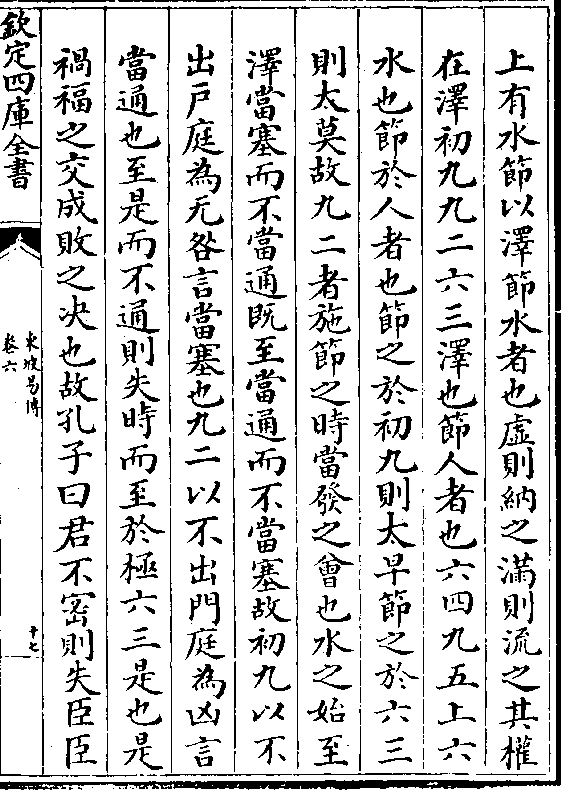 上有水節以澤節水者也虛則納之滿則流之其權
在澤初九九二六三澤也節人者也六四九五上六
水也節於人者也節之於初九則太早節之於六三
則太莫故九二者施節之時當發之會也水之始至
澤當塞而不當通既至當通而不當塞故初九以不
出戸庭為无咎言當塞也九二以不出門庭為凶言
當通也至是而不通則失時而至於極六三是也是
禍福之交成敗之决也故孔子曰君不密則失臣臣
欽定四庫全書
東坡易傳
卷六
十七